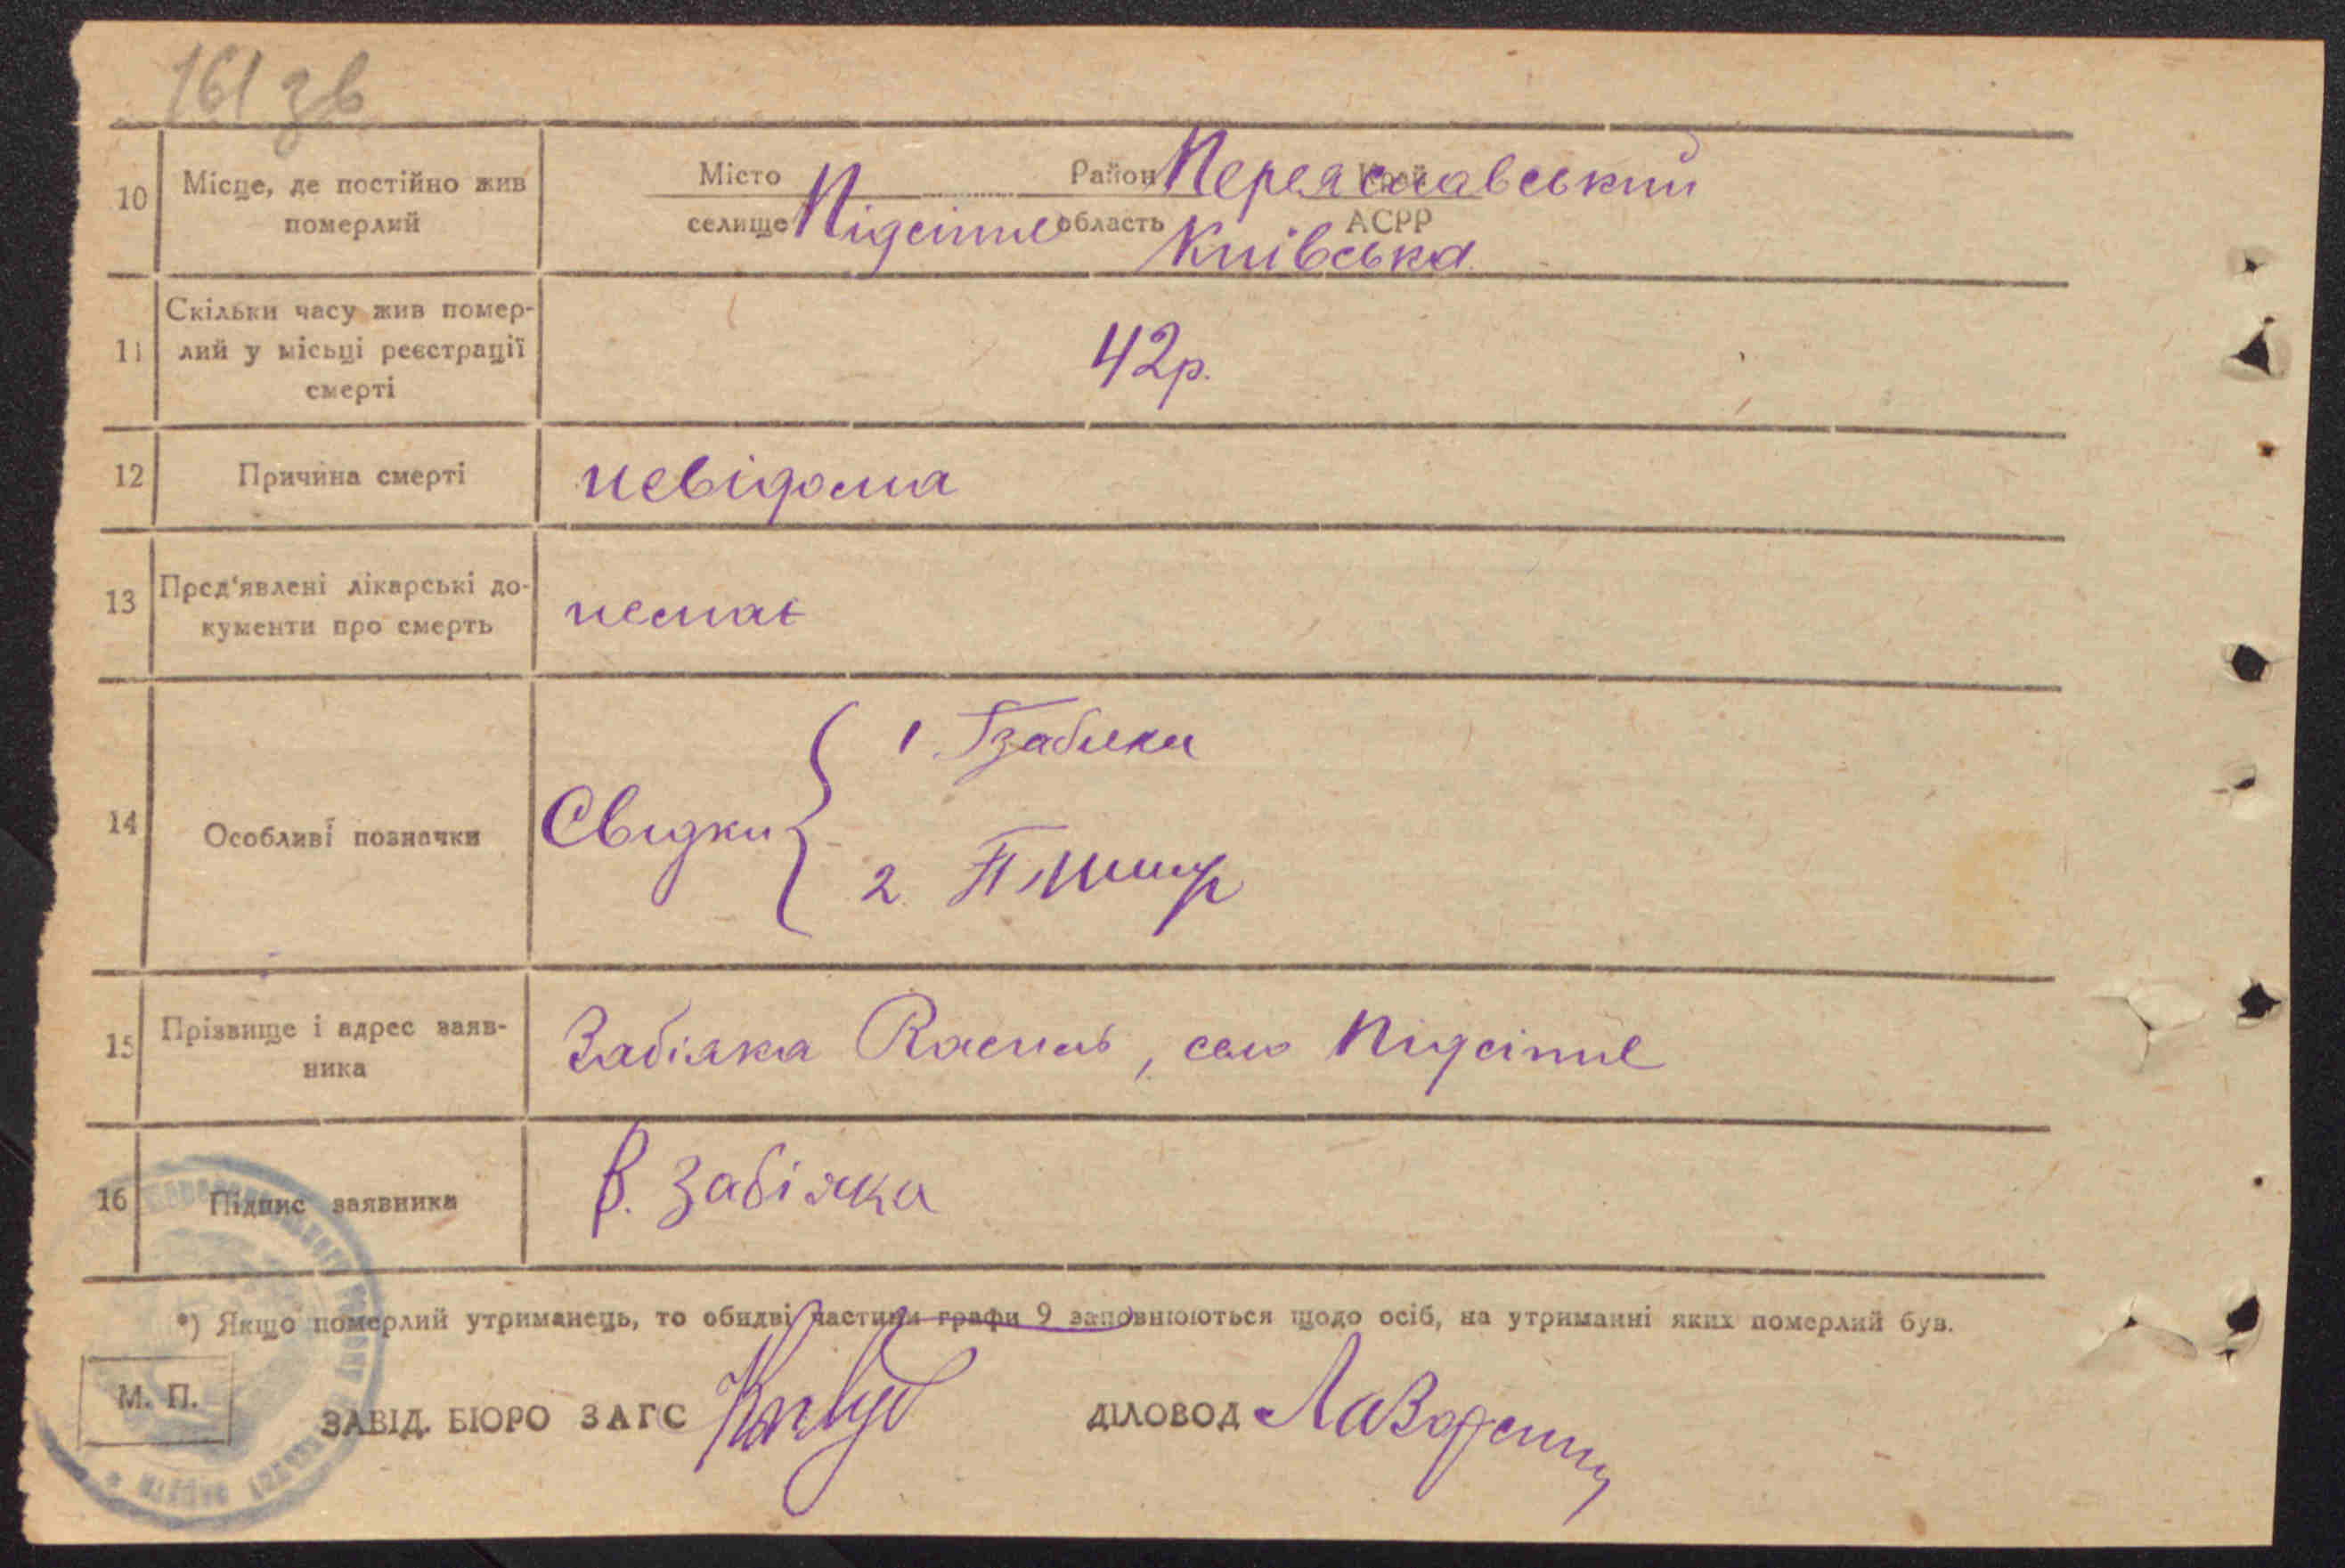 161 зв
10 Місце, де постійно жив померлий
Місто Район Переяславський Край
селище Підсінне область Київська АСРР
11 Скільки часу жив помер-
лий у місьці реєстрації
смерті
42р.
12 Причина смерті невідома
13 Пред'явлені лікарські до-
кументи про смерть
немає
14 Особливі позначки
Свідки
1
2 П
15 Прізвище і адрес заяв-
ника
Забіяка, село Підсінне
16 Підпис заявника В. Забіяка
*) Якщо померлий утриманець, то обидві частини графи 9 заповнюються щодо осіб, на утриманні яких померлий був.
М. П.
ЗАВІД. БЮРО ЗАГС ДІЛОВОД